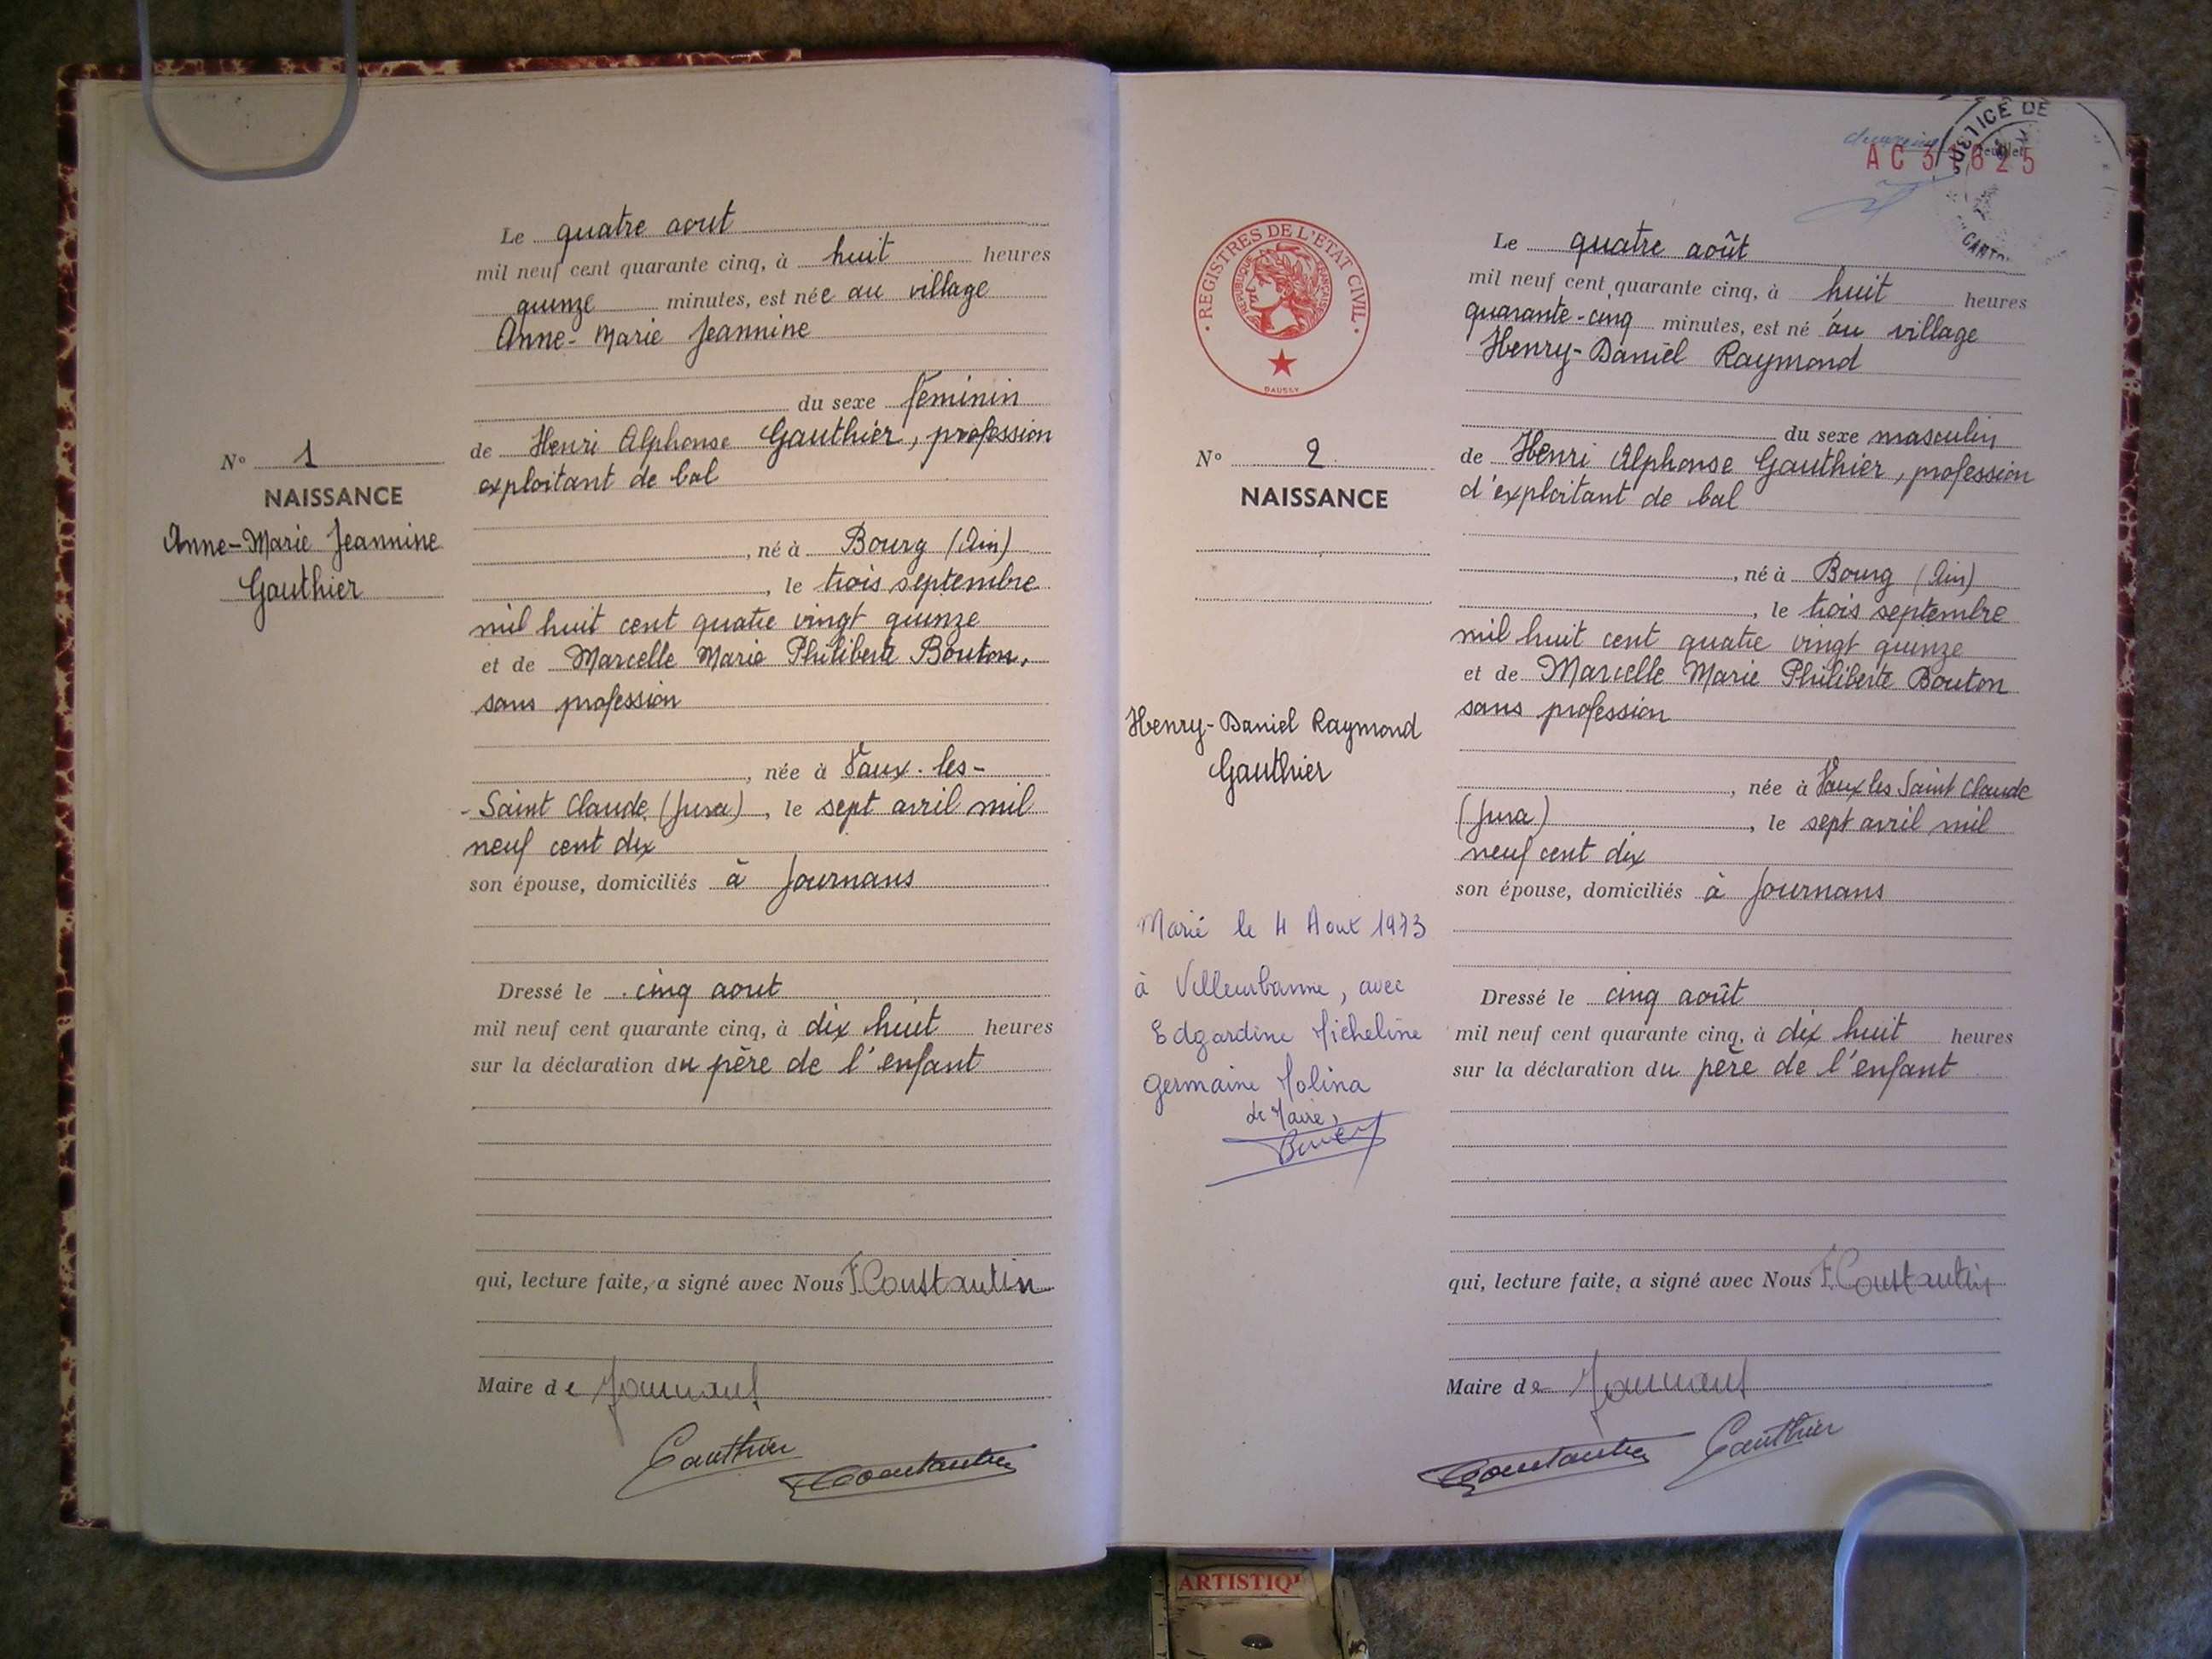 Le quatre aout
mil neuf cent quarante cinq, à huit heures
quinze minutes, est née au village
Anne-Marie Jeannine
du sexe féminin
de Henri Alphonse Gauthier, profession
exploitant de bal
, né à Bourg (Ain)
, le trois septembre
mil huit cent quatre vingt quinze
et de Marcelle Marie Philiberte Bouton,
sans profession
, née à Vaux-les-
-Saint Claude (Jura), le sept avril mil
neuf cent dix
son épouse, domiciliés à Journans
Dressé le cinq aout
mil neuf cent quarante cinq, à dix huit heures
sur la déclaration du père de l'enfant
qui, lecture faite, a signé avec Nous F. Constantin
Maire de Journans
Gauthier Constantin
N° 1
NAISSANCE
Anne-Marie Jeannine
Gauthier
feuillet
AC 625
JUSTICE DE
CANTON
REGISTRES DE L'ETAT CIVIL
REPUBLIQUE FRANÇAISE
DAUSSY
Le quatre août
mil neuf cent quarante cinq, à huit heures
quarante-cinq minutes, est né au village
Henry-Daniel Raymond
du sexe masculin
de Henri Alphonse Gauthier, profession
d'exploitant de bal
, né à Bourg (Ain)
, le trois septembre
mil huit cent quatre vingt quinze
et de Marcelle Marie Philiberte Bouton
sans profession
, née à Vaux les Saint Claude
(Jura), le sept avril mil
neuf cent dix
son épouse, domiciliés à Journans
Dressé le cinq août
mil neuf cent quarante cinq, à dix huit heures
sur la déclaration du père de l'enfant
qui, lecture faite, a signé avec Nous F. Constantin
Maire de Journans
Constantin Gauthier
N° 2
NAISSANCE
Henry-Daniel Raymond
Gauthier
Marié le 4 Aout 1973
à Villeurbanne, avec
Edgardine Micheline
Germaine Molina
le Maire,
ARTISTIQ